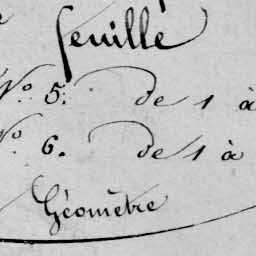 feuille
N° 5. de 1 à
N° 6. de 1 à
Géomètre